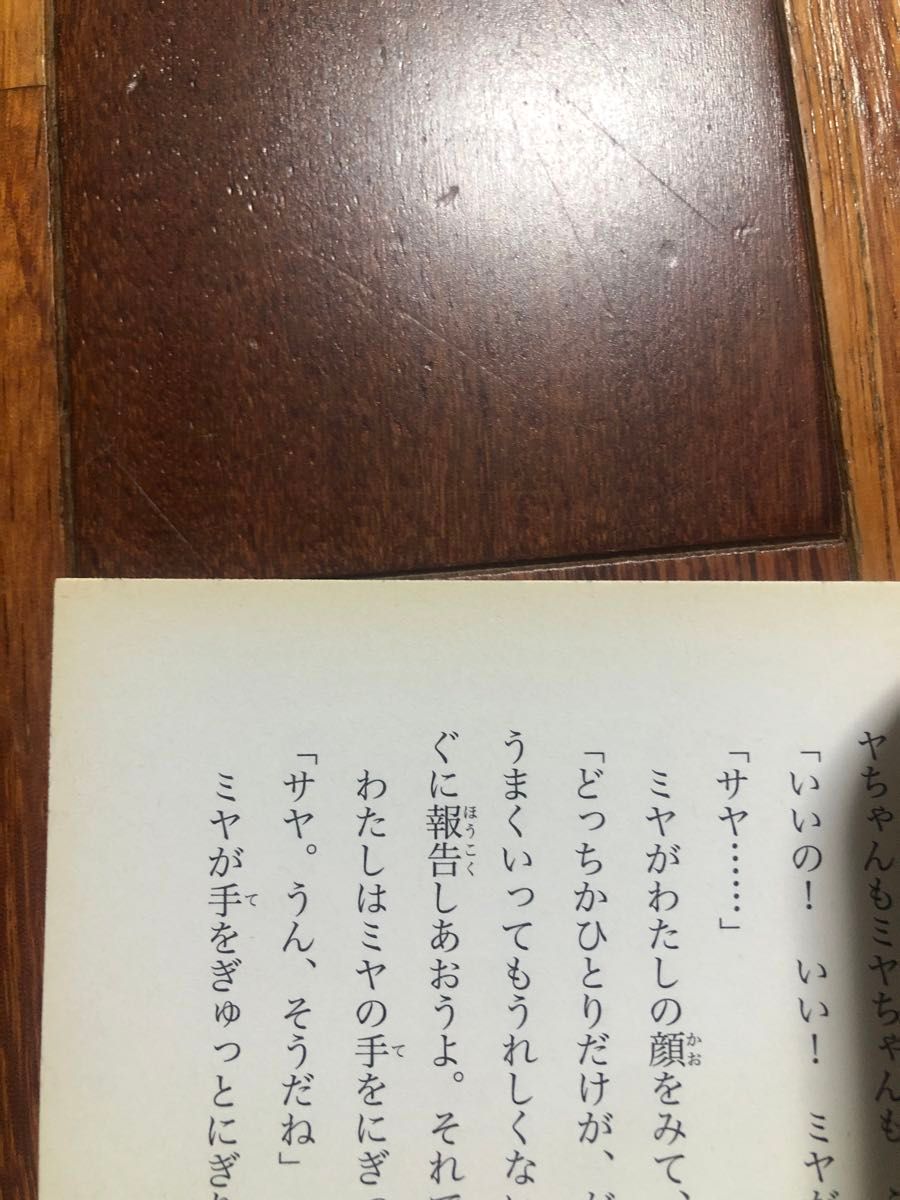 ヤちゃんもミヤちゃんも
「いいの！　いい！　ミヤが
「サヤ……」
ミヤがわたしの顔をみて、
「どっちかひとりだけが、が
うまくいってもうれしくな
ぐに報告しあおうよ。それ
わたしはミヤの手をにぎ
「サヤ。うん、そうだね」
ミヤが手をぎゅっとにぎ